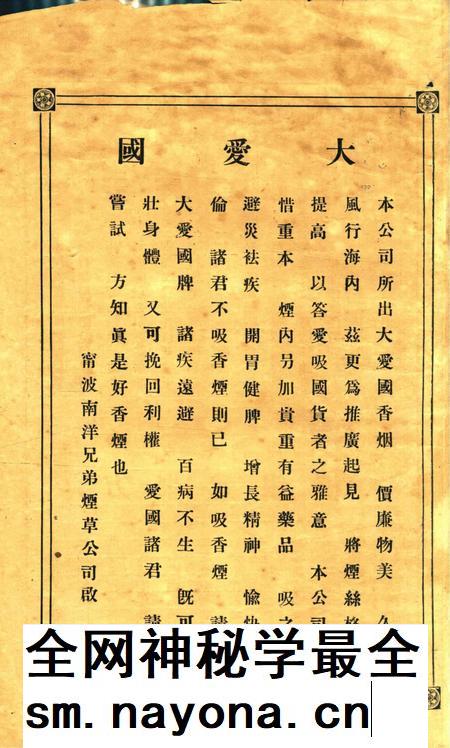 大愛國
本公司所出大愛國香烟　價廉物美　久
風行海內　茲更爲推廣起見　將煙絲格
提高　以答愛吸國貨者之雅意　本公司
惜重本　煙內另加貴重有益藥品　吸之
避災祛疾　開胃健脾　增長精神　愉快
倫　諸君不吸香煙則已　如吸香煙　請
大愛國牌　諸疾遠避　百病不生　旣可
壯身體　又可挽回利權　愛國諸君　請
嘗試　方知眞是好香煙也
甯波南洋兄弟煙草公司啟
全网神秘学最全
sm.nayona.cn